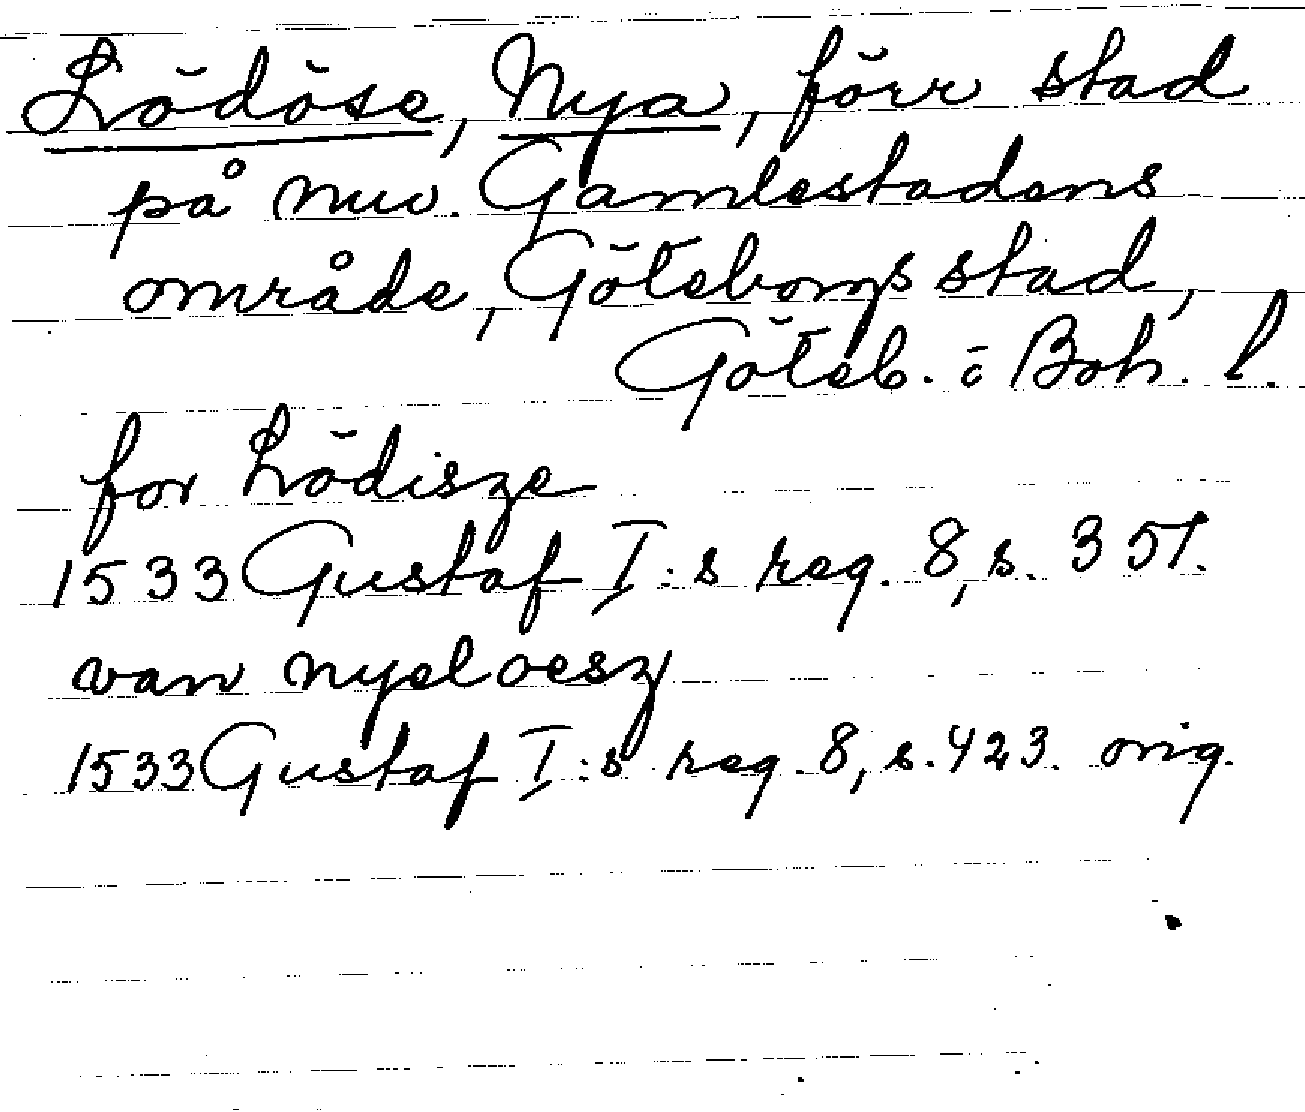 Lödöse, Nya, förr stad
på nuv. Gamlestadens
område, Göteborgs stad,
Göteb. o Boh. l.
for Lödisze
1533 Gustaf I:s reg. 8, s. 351.
van nyel oesz
1533 Gustaf I:s reg. 8, s. 423. orig.